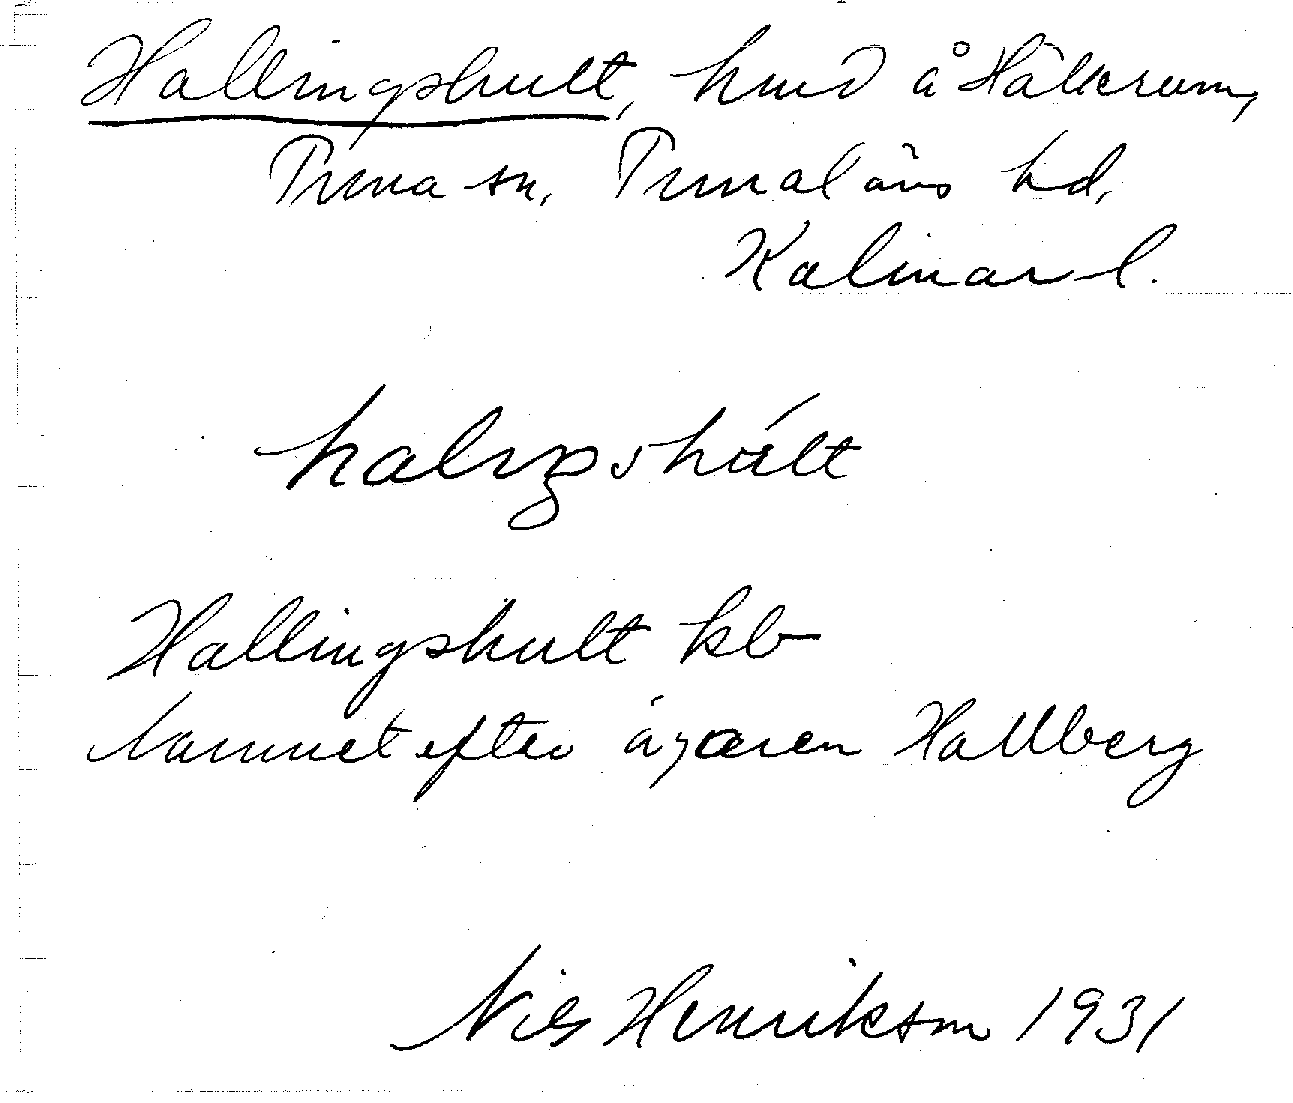 Hallingshult, hmd å Hällerum,
Tuna sn, Tunaläns hd,
Kalmar l.
halıŋshúlt
Hallingshult kb
Namnet efter ägaren Hallberg
Nils Henrikson 1931